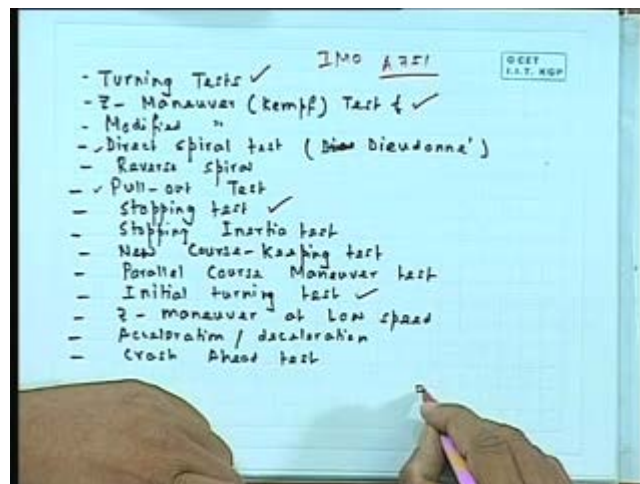 IMO A751
O CET
I.I.T. KGP
- Turning Tests ✓
- Z- Maneuver (Kempf) Test & ✓
- Modified "
- Direct spiral test ( Dieudonne')
- Reverse spiral
- ✓ Pull-out Test
- Stopping test ✓
- Stopping Inertia test
- New Course-Keeping test
- Parallel Course Maneuver test
- Initial turning test ✓
- Z- maneuver at Low speed
- Acceloration / deceloration
- Crash Ahead test